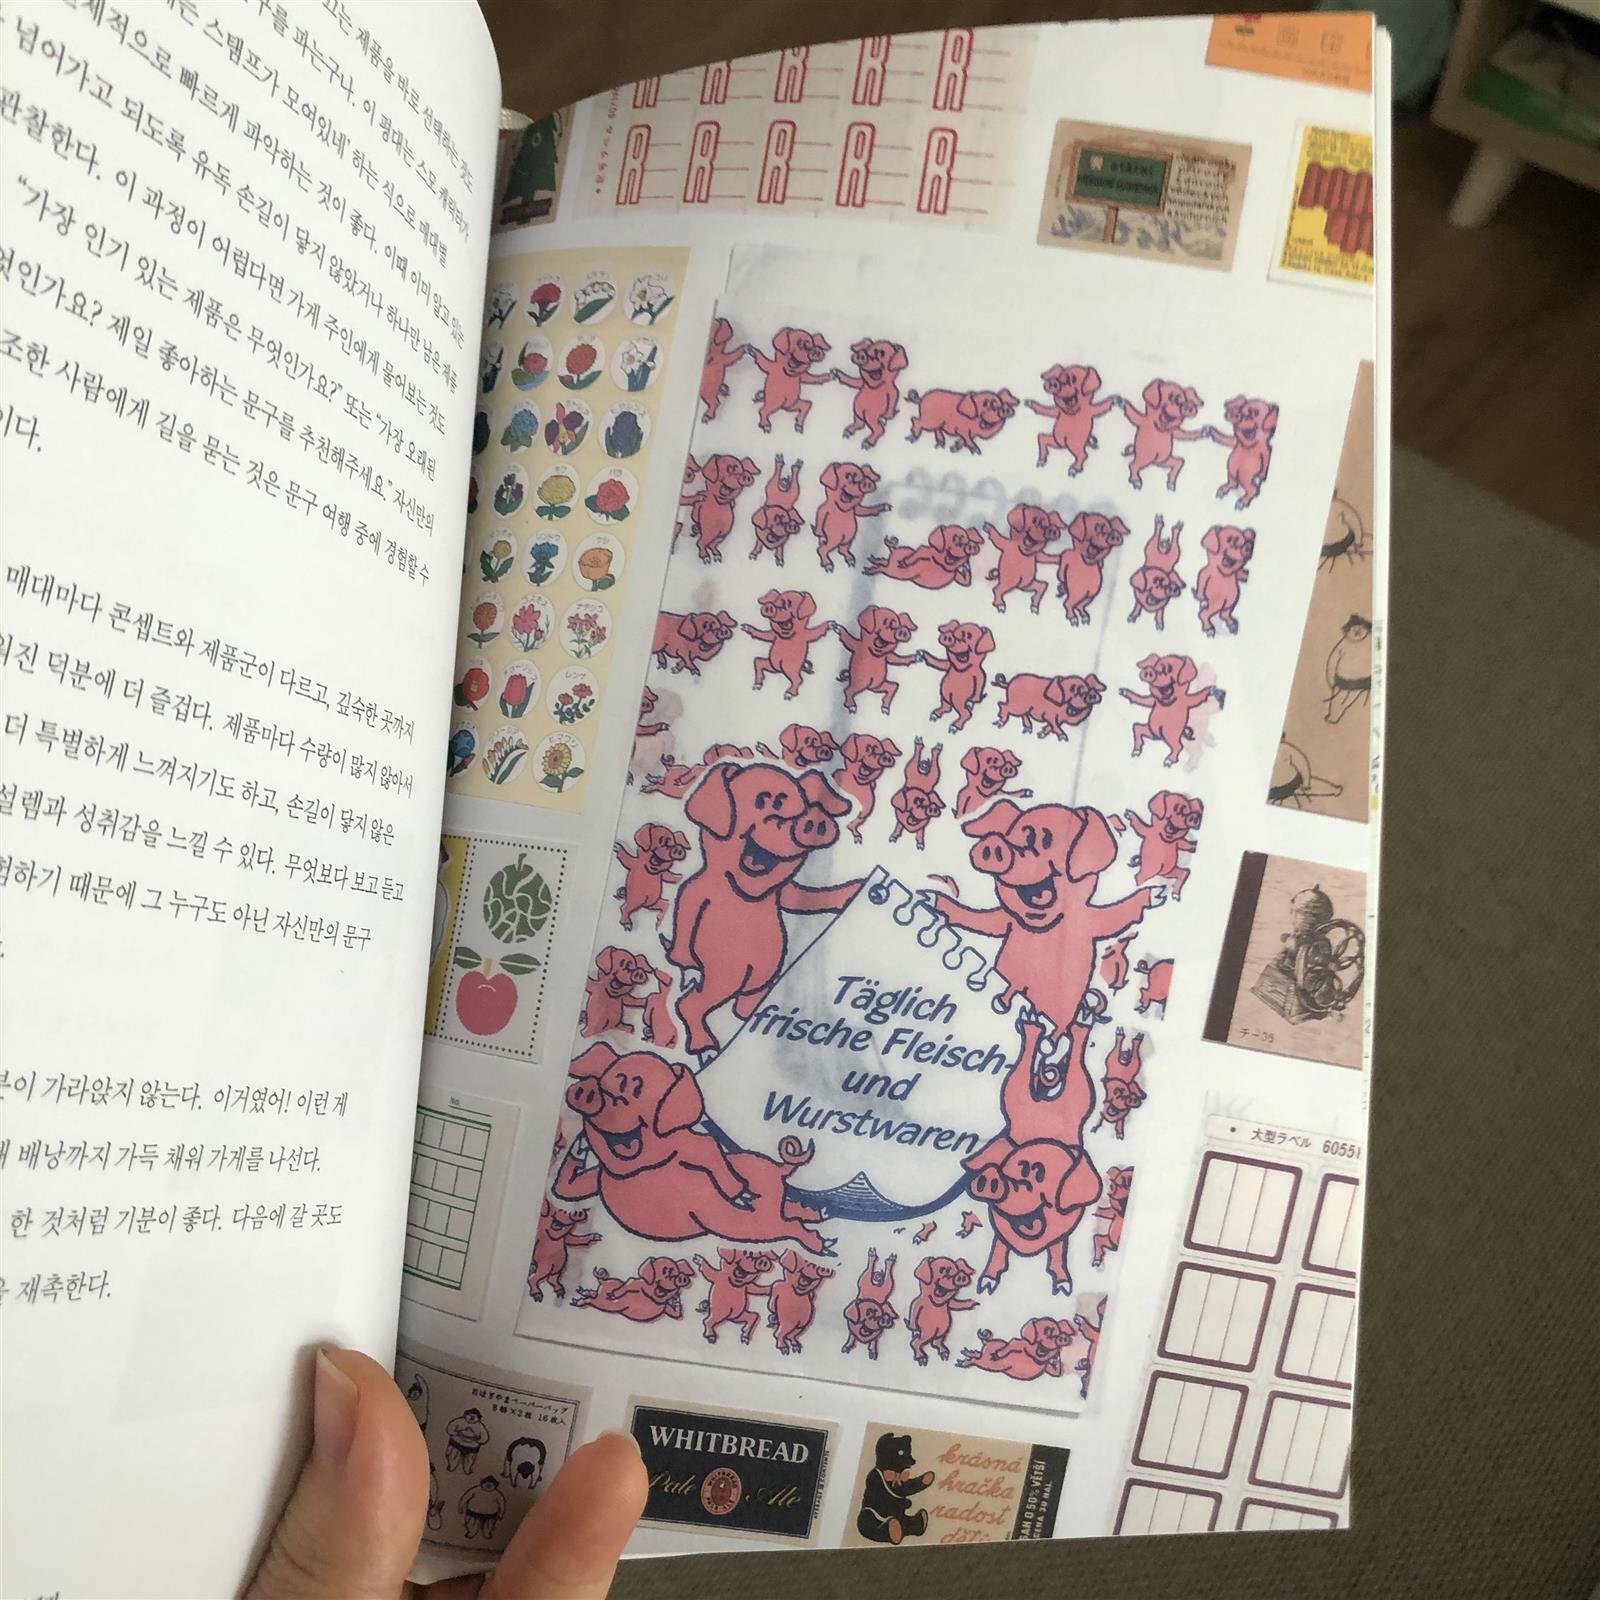 고는 제품을 바로 선택하는 것도
구를 파는구나. 이 평대는 스모 캐릭터가
는 스탬프가 모여있네' 하는 식으로 매대별
체적으로 빠르게 파악하는 것이 좋다. 이때 이미 알고 있는
넘어가고 되도록 유독 손길이 닿지 않았거나 하나만 남은 제품
관찰한다. 이 과정이 어렵다면 가게 주인에게 물어보는 것도
"가장 인기 있는 제품은 무엇인가요?" 또는 "가장 오래된
엇인가요? 제일 좋아하는 문구를 추천해주세요." 자신만의
조한 사람에게 길을 묻는 것은 문구 여행 중에 경험할 수
이다.
매대마다 콘셉트와 제품군이 다르고, 깊숙한 곳까지
워진 덕분에 더 즐겁다. 제품마다 수량이 많지 않아서
더 특별하게 느껴지기도 하고, 손길이 닿지 않은
설렘과 성취감을 느낄 수 있다. 무엇보다 보고 듣고
험하기 때문에 그 누구도 아닌 자신만의 문구
분이 가라앉지 않는다. 이거였어! 이런 게
배낭까지 가득 채워 가게를 나선다.
한 것처럼 기분이 좋다. 다음에 갈 곳도
재촉한다.
R R R R R
R R R R R
バラ
キク
リンドウ
ケシ
コスモス
ナデシコ
チューリップ
レンゲ
ヒマワリ
Täglich
frische Fleisch-
und
Wurstwaren
チー35
大型ラベル 6055
No.
おはぎやまペーパーバッグ
8柄×2枚 16枚入
WHITBREAD
Pale Ale
krásná
hračka
radost
dětí
SAH O 50% VĚTŠÍ
CENA 30 HAL.